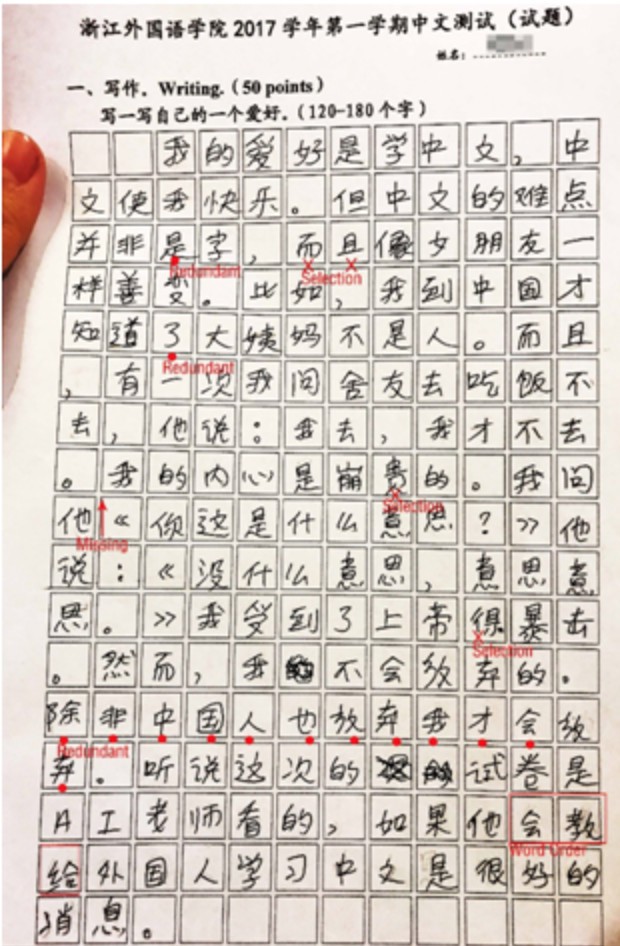 浙江外国语学院2017学年第一学期中文测试（试题）
姓名：
一、写作。Writing.（50 points）
写一写自己的一个爱好。（120-180个字）
我的爱好是学中文，中
文使我快乐。但中文的难点
并非是字，而且像女朋友一
Redundant
Selection
样善变。比如，我到中国才
知道了大姨妈不是人。而且
Redundant
，有一次我问舍友去吃饭不
去，他说：我去，我才不去
。我的内心是崩贵的。我问
Selection
他《你这是什么意思？》他
Missing
说：《没什么意思，意思意
思。》我受到了上帝得暴击
Selection
。然而，我不会放弃的。
除非中国人也放弃我才会放
Redundant
弃。听说这次的试卷是
AI老师看的，如果他会教
Word Order
给外国人学习中文是很好的
消息。